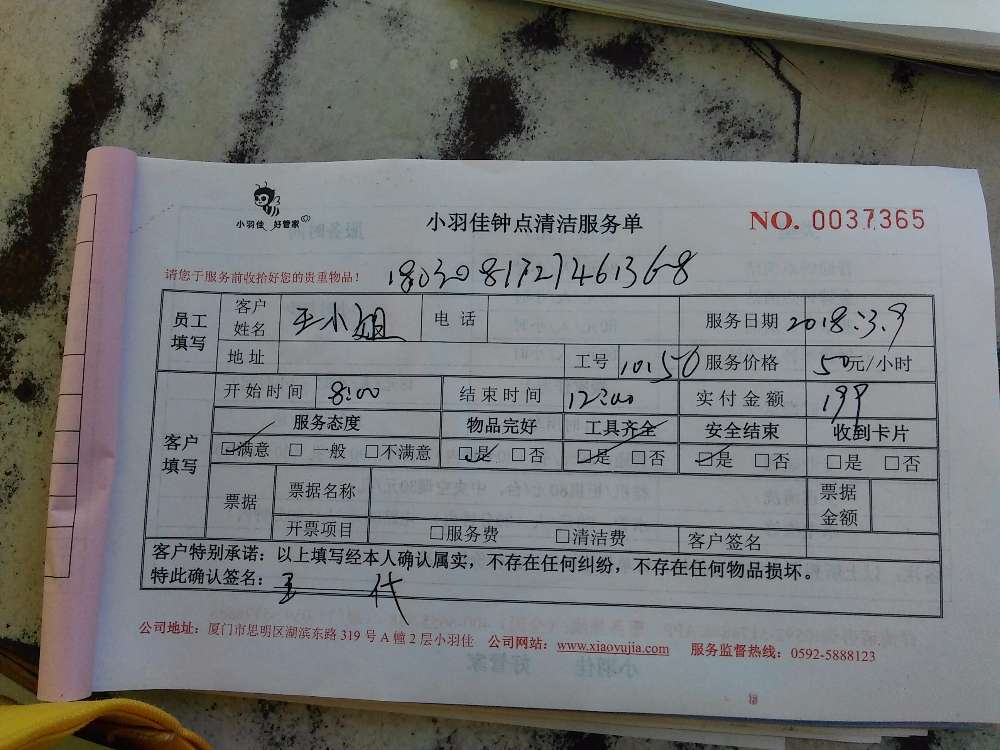 小羽佳 好管家
小羽佳钟点清洁服务单
NO. 0037365
请您于服务前收拾好您的贵重物品！
1803081727461368
员工填写 客户姓名 王小姐 电话 服务日期 2018.3.9
地址 工号 10150 服务价格 50元/小时
客户填写 开始时间 8:00 结束时间 12:00 实付金额 199
服务态度 物品完好 工具齐全 安全结束 收到卡片
☑满意 □一般 □不满意 ☑是 □否 ☑是 □否 ☑是 □否 □是 □否
票据 票据名称 票据金额
开票项目 □服务费 □清洁费 客户签名
客户特别承诺：以上填写经本人确认属实，不存在任何纠纷，不存在任何物品损坏。
特此确认签名：王 代
公司地址：厦门市思明区湖滨东路319号A幢2层小羽佳 公司网站：www.xiaoyujia.com 服务监督热线：0592-5888123